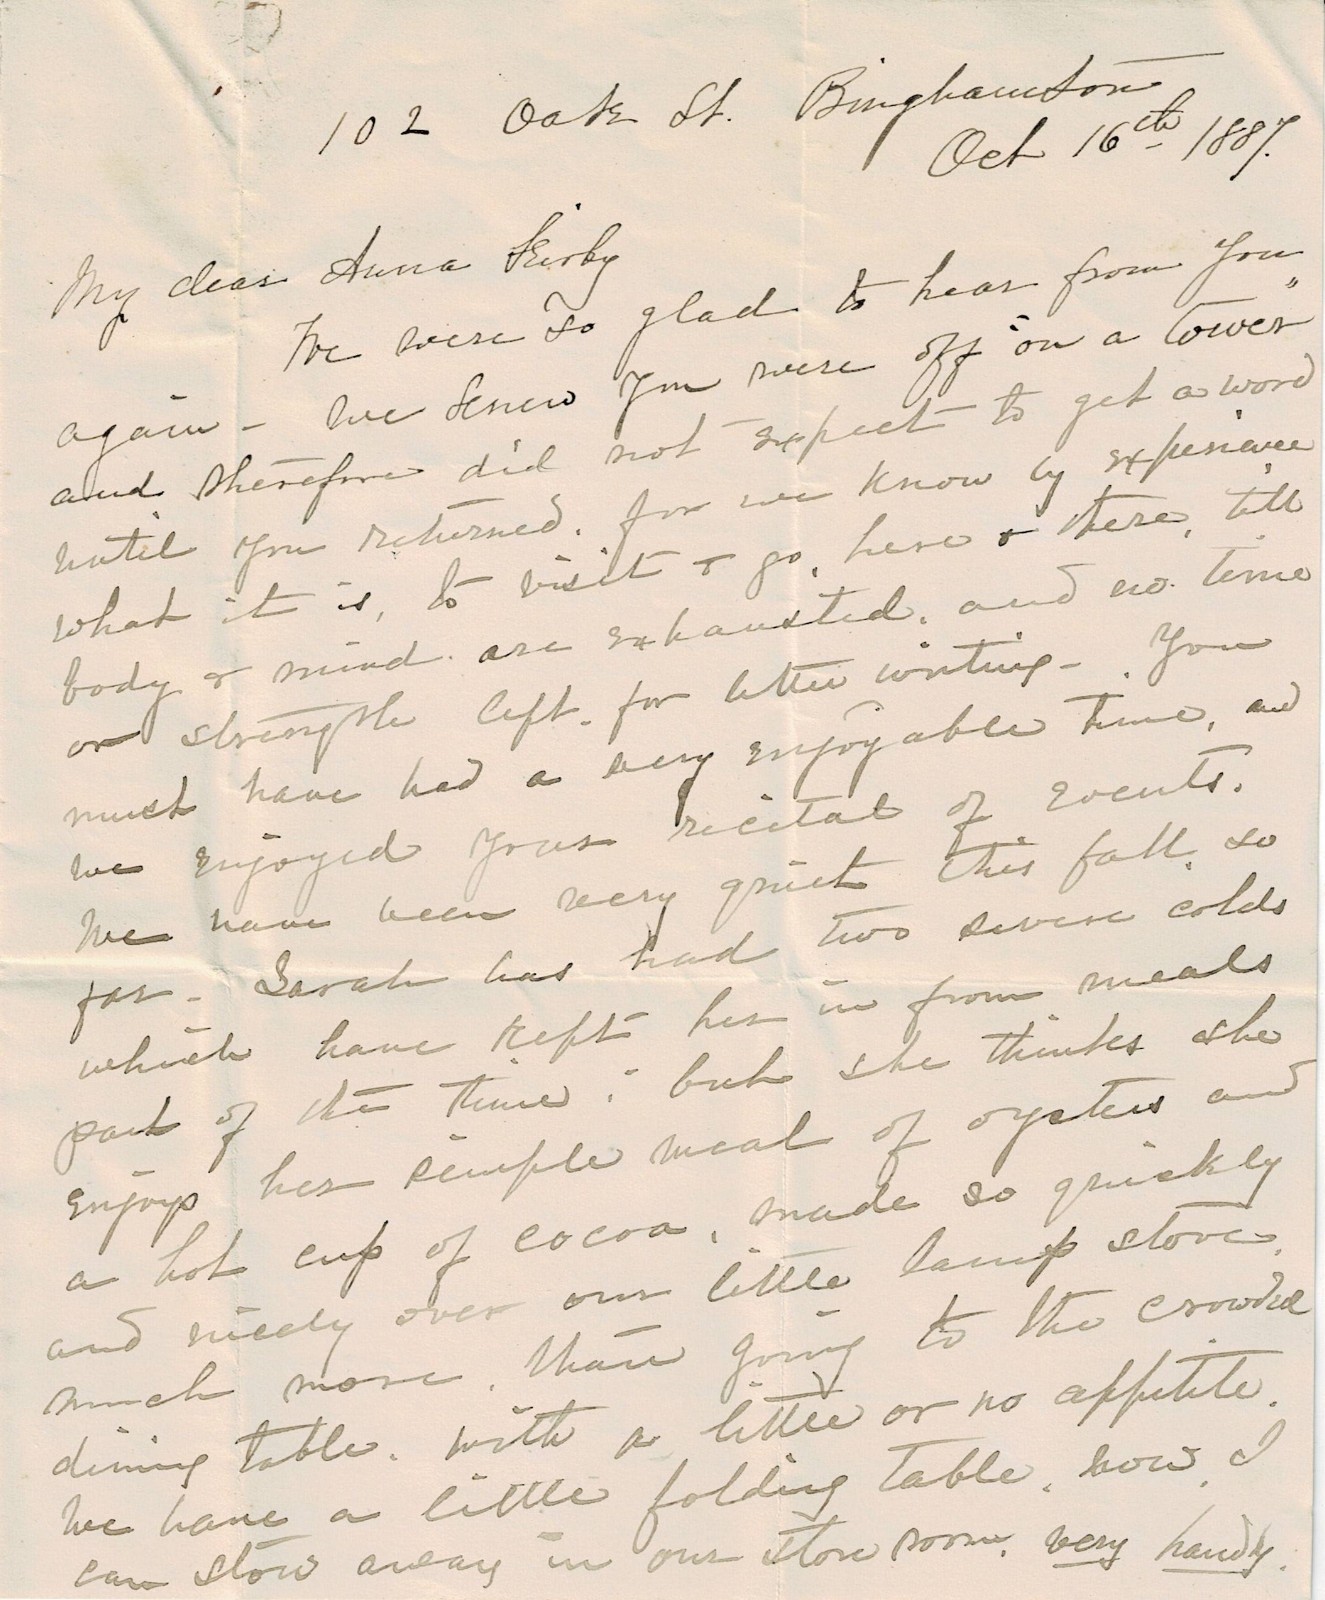 102 Oak St. Binghamton
Oct 16th 1887.
My dear Anna Kirby
We were so glad to hear from you
again - We knew you were off "on a tower"
and therefore did not expect to get a word
until you returned. for we know by experience
what it is, to visit & go, here & there, till
body & mind are exhausted. and no time
or strength left. for letter writing - You
must have had a very enjoyable time, and
we enjoyed your recital of events.
We have been very quiet this fall, so
far - Sarah has had two severe colds
which have kept her in from meals
part of the time; but she thinks she
enjoys her simple meal of oysters and
a hot cup of cocoa, made so quickly
and nicely over our little lamp stove,
much more, than going to the crowded
dining table. with a little or no appetite.
We have a little folding table, now, I
can stow away in our store room, very handy.